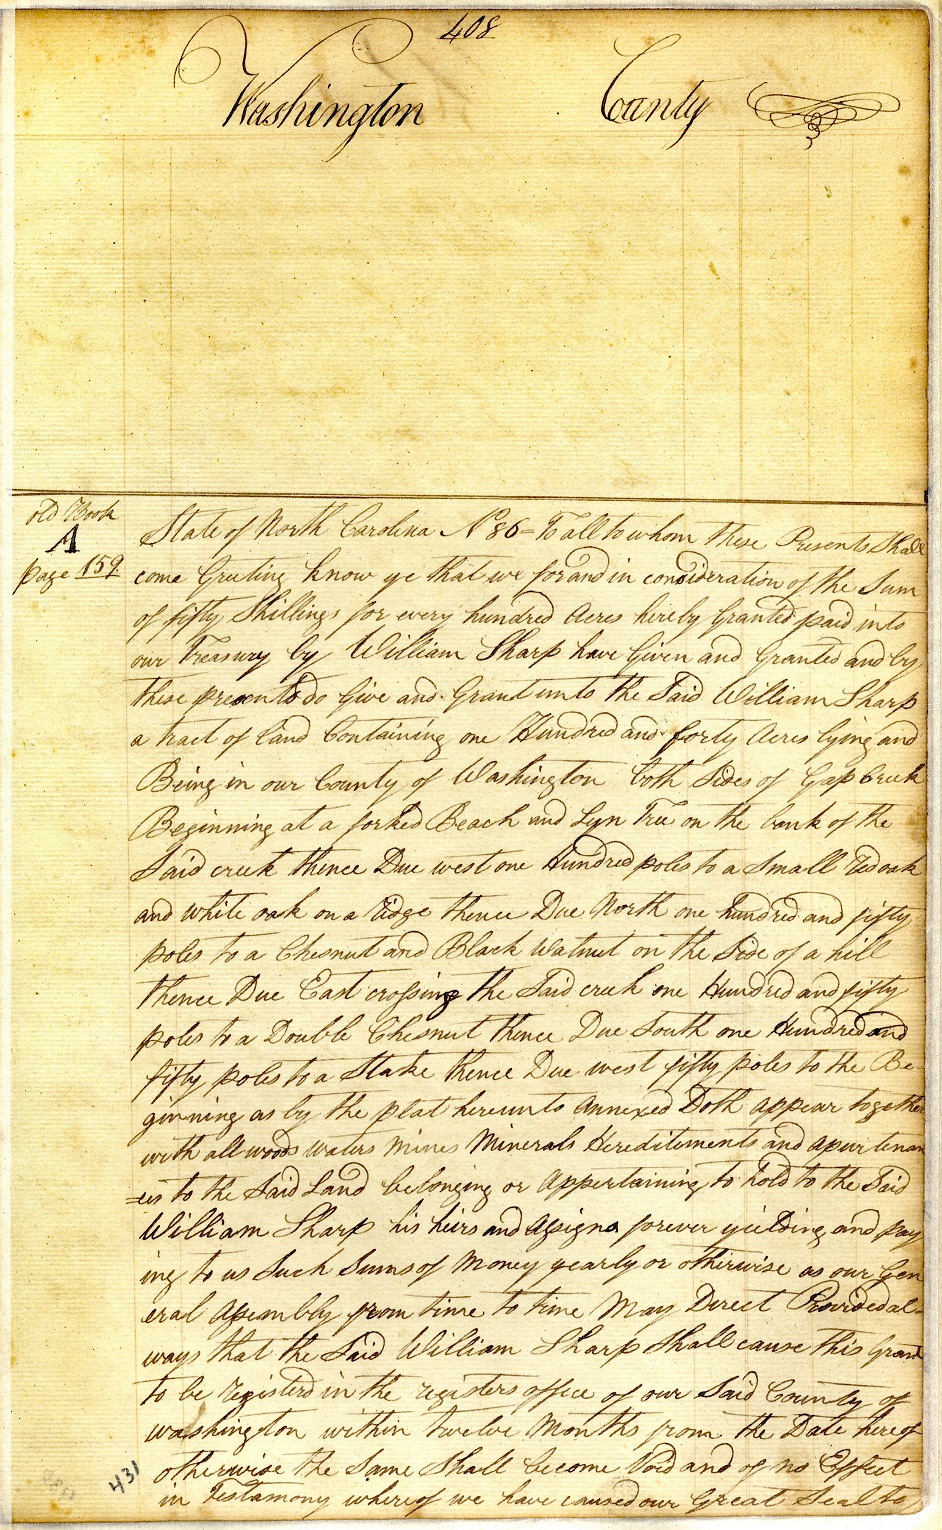 408
Washington County
old Book
A
page 159
State of North Carolina No 86 = To all to whom these Presents Shall
come Greeting know ye that we for and in consideration of the Sum
of fifty Shillings for every hundred Acres hereby Granted paid into
our Treasury by William Sharp have Given and Granted and by
these presents do Give and Grant unto the Said William Sharp
a tract of land Containing one Hundred and forty Acres lying and
Being in our County of Washington both Sides of Gap Creek
Beginning at a forked Beach and Lyn Tree on the bank of the
Said creek thence Due west one Hundred poles to a Small Red oak
and white oak on a Ridge thence Due North one hundred and fifty
poles to a Chesnut and Black Walnut on the Side of a hill
thence Due East crossing the Said creek one Hundred and fifty
poles to a Double Chesnut thence Due South one Hundred and
fifty poles to a Stake thence Due west fifty poles to the Be
ginning as by the plat hereunto Annexed Doth appear together
with all woods waters mines Minerals Hereditements and apurtenan
=ces to the Said Land belonging or Appertaining to hold to the Said
William Sharp his heirs and Assigns forever yielding and pay
ing to us Such Sums of Money yearly or otherwise as our Gen
eral Assembly from time to time May Direct Provided al=
ways that the Said William Sharp Shall cause this Grant
to be Registerd in the registers office of our Said County of
washington within twelve Months from the Date hereof
otherwise the Same Shall become Void and of no Effect
in Testamony whereof we have caused our Great Seal to
431